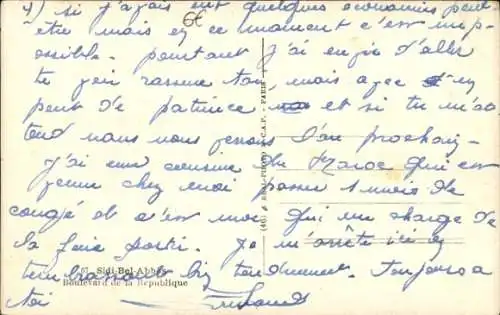 4) si j'avais eut quelques économies peut
être mais en ce moment c'est imp-
ossible. pourtant j'ai envie d'aller
te voir rassure toi, mais avec un
peut de patience et si tu m'at
tend nous nous verrons l'an prochain-
J'ai une cousine du Maroc qui est
venue chez moi passer 1 mois de
congé et c'est moi qui me charge de
la faire sortir. Je m'arrête ici en
t'embrassant bien tendrement. Toujours a
toi
6€
67 Sidi-Bel-Abbès
Boulevard de la République